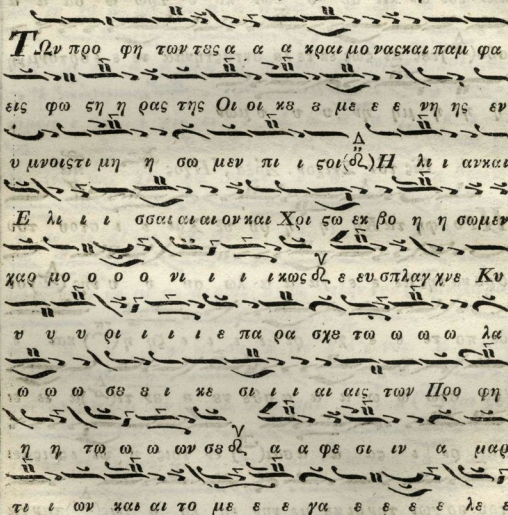 ΤΩν προ φη των τες α α α κραι μο νας και παμ φα
εις φω ςη η ρας της Οι οι κε ε με ε ε νη ης εν
υ μνοις τι μη η σω μεν πι ι ςοι (Δ) Η λι ι αν και
Ε λι ι ι σσαι αι αι ον και Χρι ςω εκ βο η η σωμεν
χαρ μο ο ο ο νι ι ι ι κως ε ευ σπλαγ χνε Κυ
υ υ υ ρι ι ι ι ε πα ρα σχε τω ω ω ω λα
ω ω ω σε ε ι κε σι ι ι αι αις των Προ φη
η η τω ω ω ων σε α α φε σι ιν α μαρ
τι ι ων και αι το με ε ε γα ε ε ε ε λε ε